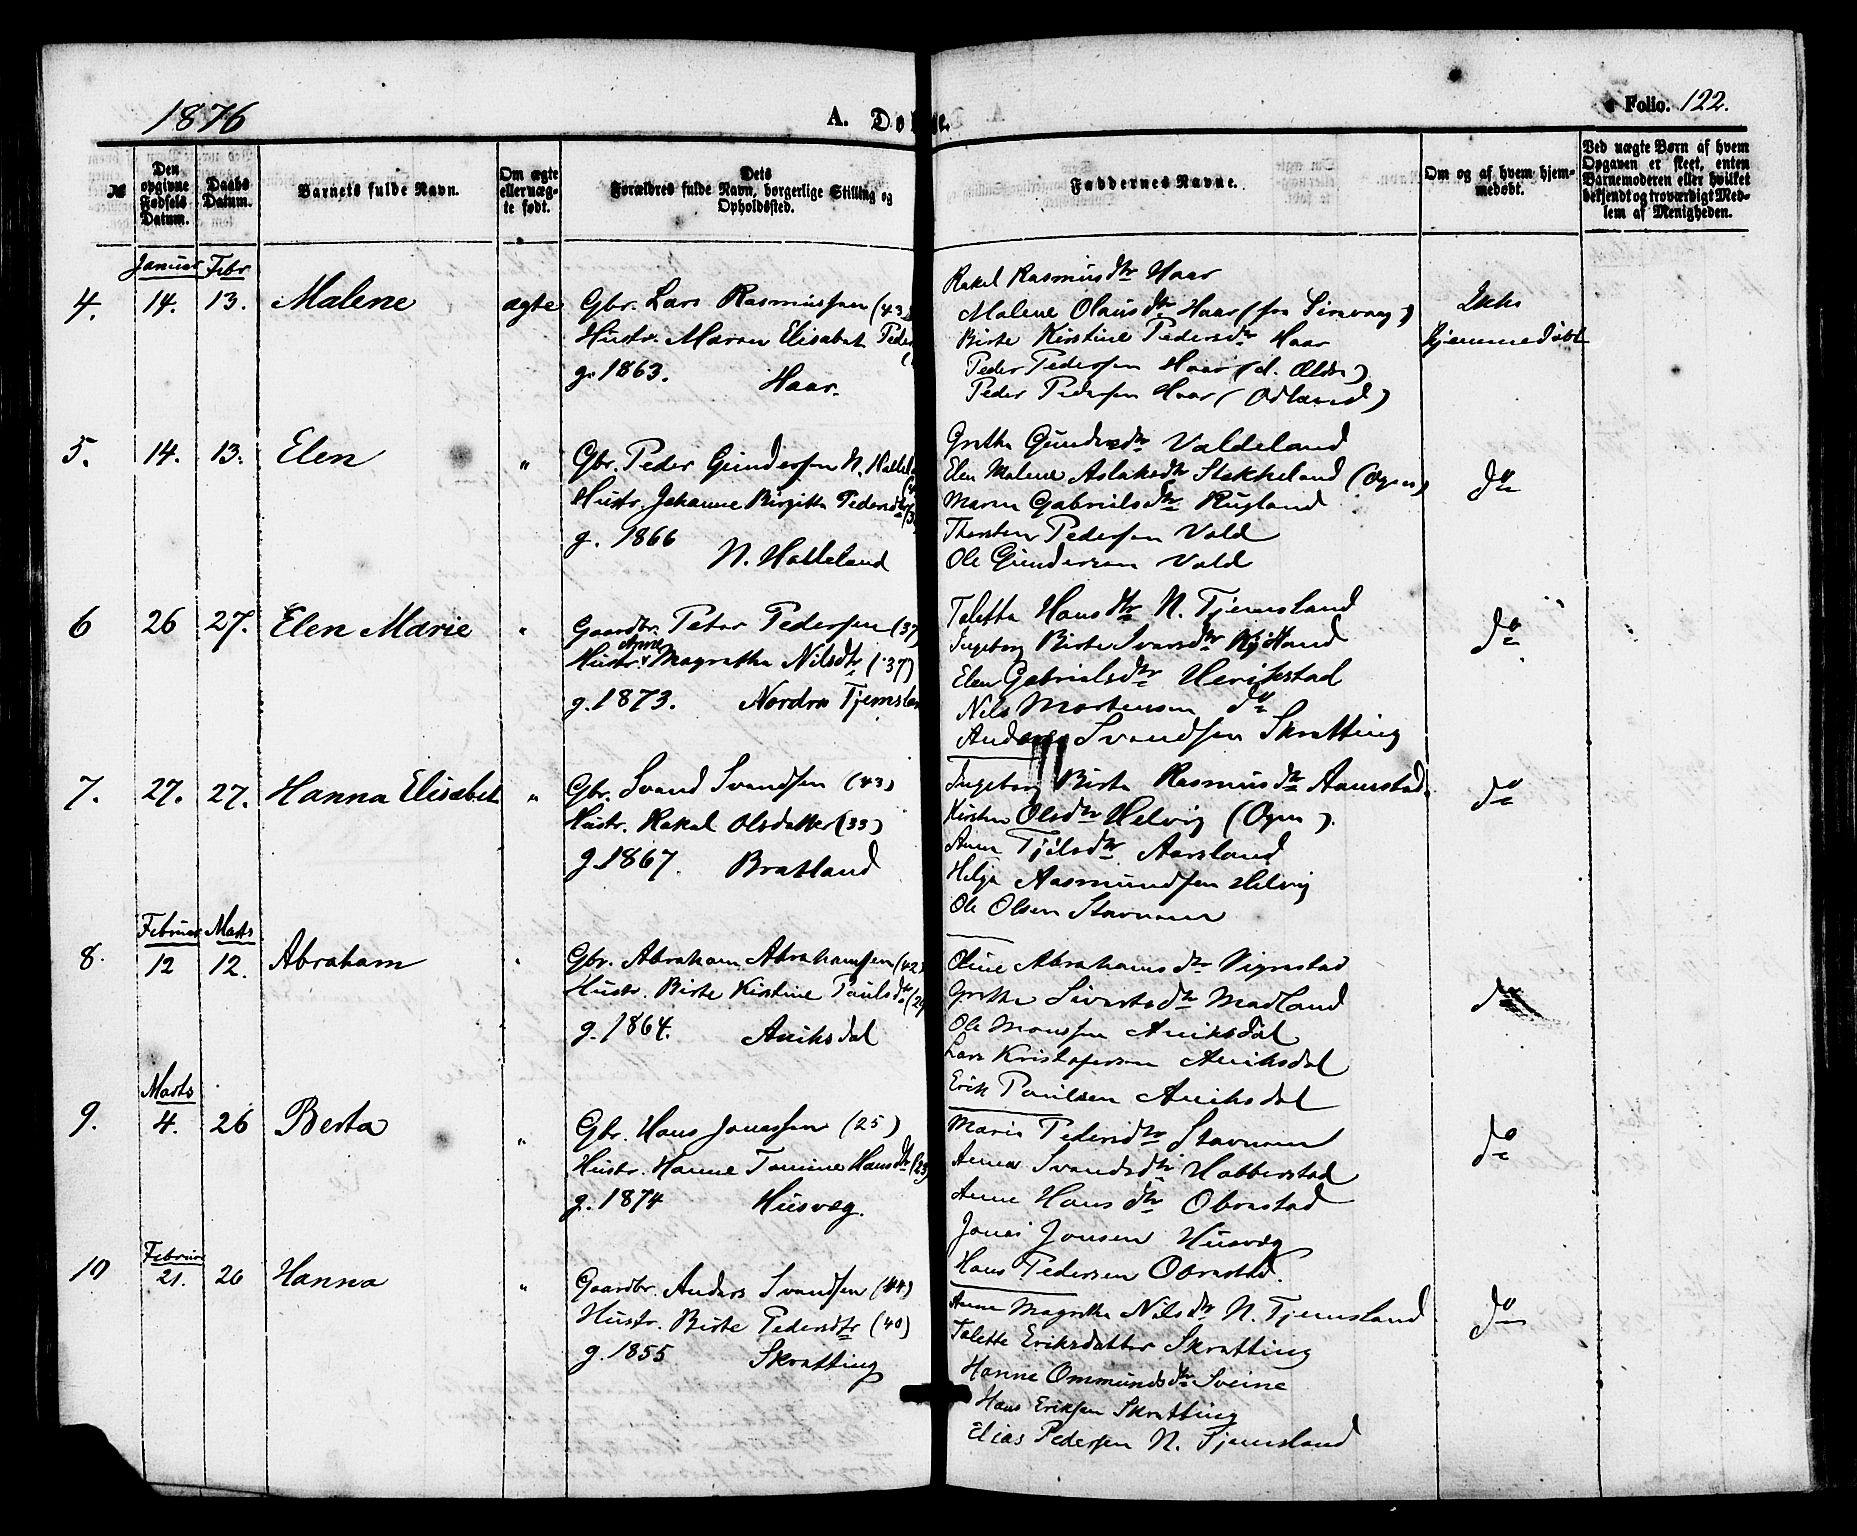 1876
A. Døbte.
Folio. 122.
№
Den opgivne Fødsels Datum.
Daabs Datum.
Barnets fulde Navn.
Om ægte eller uægte født.
Dets Forældres fulde Navn, borgerlige Stilling og Opholdssted.
Faddernes Navne.
Om og af hvem hjemmedøbt.
Ved uægte Børn af hvem Opgaven er skeet, enten Barnemoderen eller hvilket bekjendt og troværdigt Medlem af Menigheden.
Januar Febr
4. 14. 13. Malene ægte
Gbr. Lars Rasmussen (43)
Hustr. Maren Elisabet Peder
g. 1863. Haar.
Rakel Rasmusdtr Haar
Malene Olausdtr Haar (fra Sirevaag)
Birte Kirstine Pedersdtr Haar
Peder Pedersen Haar (d. Ældr)
Peder Pedersen Haar (Odland)
Ikke
hjemmedøbt
5. 14. 13. Elen "
Gbr. Peder Gundersen N. Hallela
Hustr. Johanne Birgitte Pedersdtr
g. 1866
N. Halleland
Grethe Gundersdtr Valdeland
Elen Malene Aslaksdtr Stokkeland (Ogna)
Maren Gabrielsdtr Rugland
Thorsten Pedersen Vold
Ole Gundersen Vold
do
6 26 27. Elen Marie "
Gaardbr. Peter Pedersen (37)
Hustr. Magrethe Nilsdtr (37)
g. 1873. Nordre Tjemsla
Talette Hansdtr N. Tjemsland
Ingeborg Birte Ivarsdtr
Elen Gabrielsdtr Herikstad
Nils Mortensen do
Anders Svendsen Skratting
do
7. 27. 27. Hanna Elisabet "
Gbr. Svend Svendsen (43)
Hustr. Rakel Olsdatter (33)
g. 1867. Bratland
Ingeborg Birte Rasmusdtr Aanestad
Kirsten Olsdtr Helvig (Ogna).
Anne Aarsland
Helge Aasmundsen Helvig
Ole Olsen Stavnem
do
Februar Marts
8. 12 12. Abraham "
Gbr. Abraham Abrahamsen (42)
Hustr. Birte Kirstine Paulsdtr (29
g. 1864. Aniksdal
Oline Abrahamsdtr Vigrestad
Grethe Sivertsdtr Madland
Ole Monssen Aniksdal
Lars Kristofersen Aniksdal
Erik Paulsen Aniksdal
do
Marts
9. 4. 26 Berta "
Gbr. Hans Jonassen (25)
Hustr. Hanne Tomine Hansdtr (23)
g. 1874 Husvæg.
Maria Pedersdtr Stavnem
Anna Svendsdtr Habberstad
Anne Hansdtr Obrestad
Jonas Jonsen Husvæg
Hans Pedersen Obrestad.
do
Februar
10 21. 26 Hanna "
Gaardbr. Anders Svendsen (44)
Hustr. Birte Pedersdtr (40)
g. 1855 Skratting
Anne Magrethe Nilsdtr N. Tjemsland
Talette Eriksdatter Skratting
Hanne Ommundsdtr Sveine
Hans Eriksen Skratting
Elias Pedersen N. Tjemsland
do